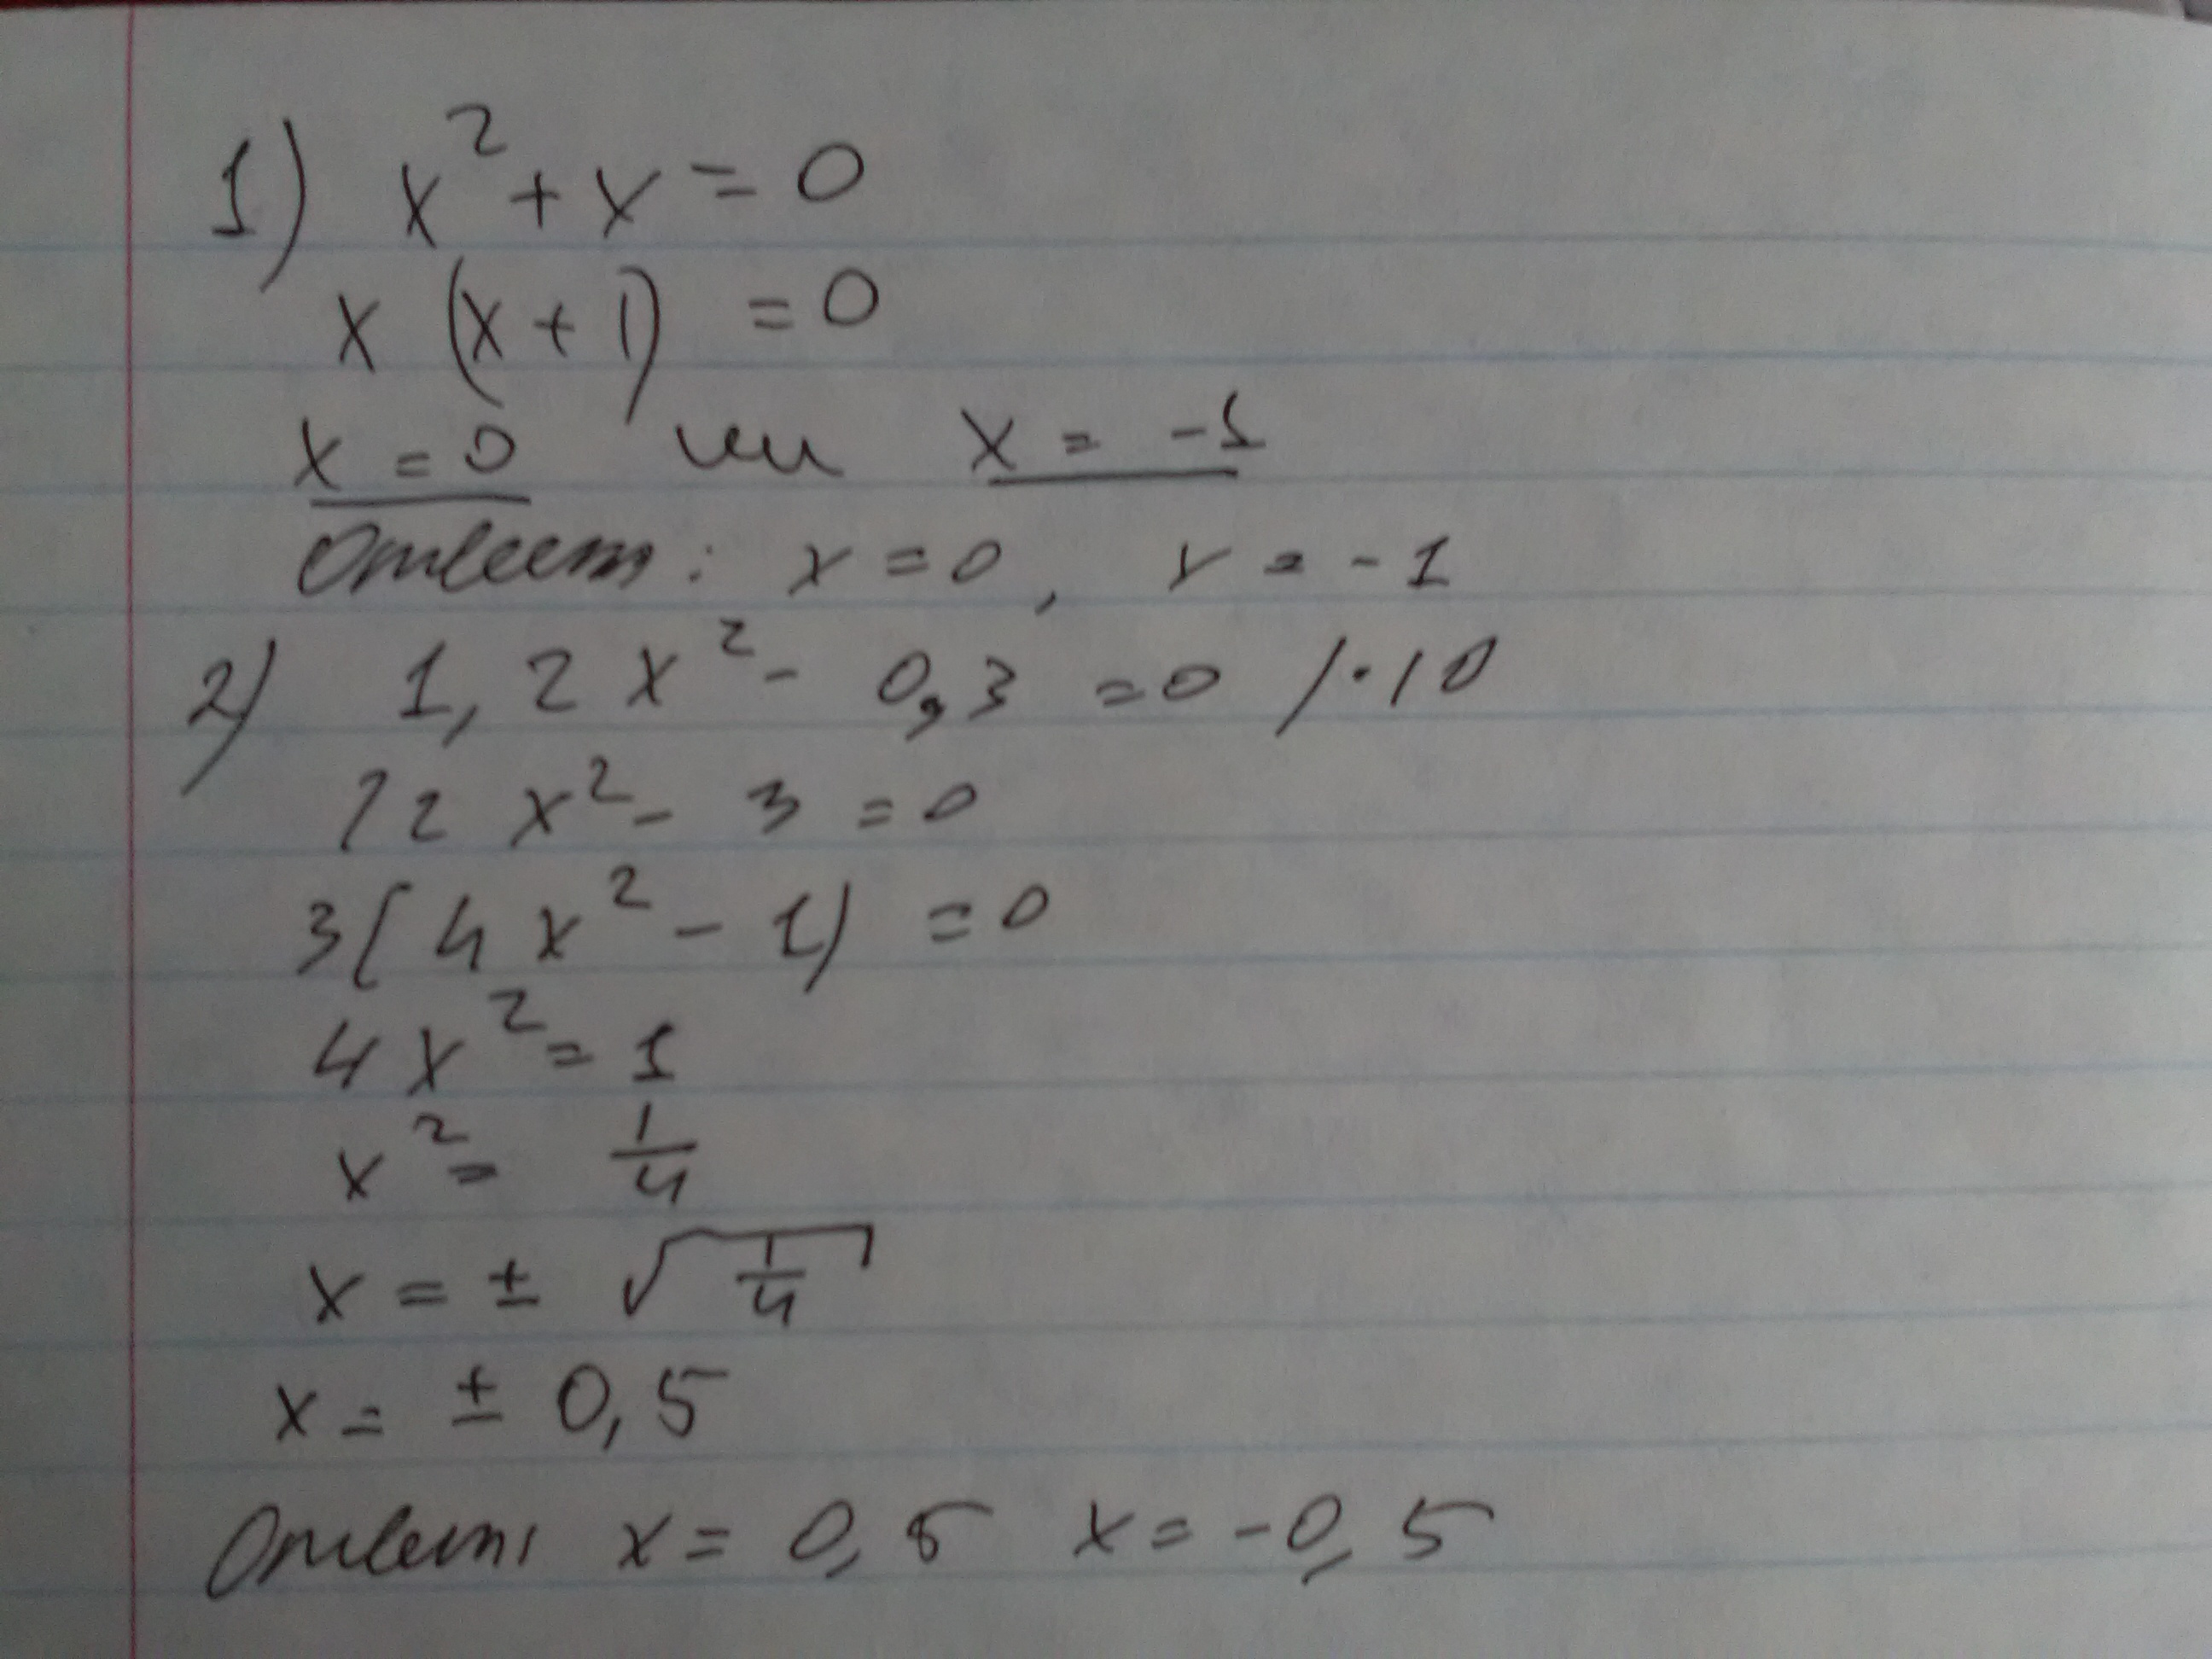 1) x² + x = 0
x (x + 1) = 0
x = 0 или x = -1
Ответ: x = 0, x = -1
2) 1,2 x² - 0,3 = 0 / · 10
12 x² - 3 = 0
3 ( 4 x² - 1) = 0
4 x² = 1
x² = 1/4
x = ± √(1/4)
x = ± 0,5
Ответ: x = 0,5 x = -0,5